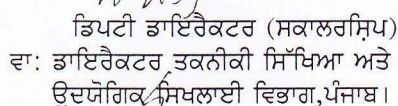 ਡਿਪਟੀ ਡਾਇਰੈਕਟਰ (ਸਕਾਲਰਸ਼ਿਪ)
ਵਾ: ਡਾਇਰੈਕਟਰ ਤਕਨੀਕੀ ਸਿੱਖਿਆ ਅਤੇ
ਉਦਯੋਗਿਕ ਸਿਖਲਾਈ ਵਿਭਾਗ,ਪੰਜਾਬ।